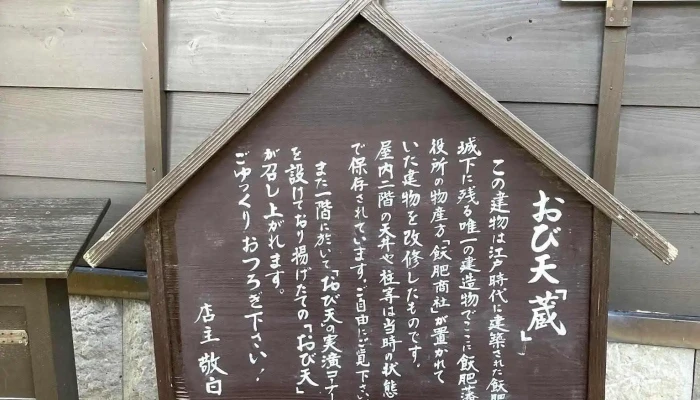 おび天「蔵」
この建物は江戸時代に建築された飫肥
城下に残る唯一の建造物でここに飫肥藩
役所の物産方「飫肥商社」が置かれて
いた建物を改修したものです。
屋内二階の天井や柱等は当時の状態
で保存されています。ご自由にご覧下さい。
また一階に於いて「おび天の実演コーナー
を設けており揚げたての「おび天」
が召し上がれます。
ごゆっくりおつろぎ下さい!
店主 敬白